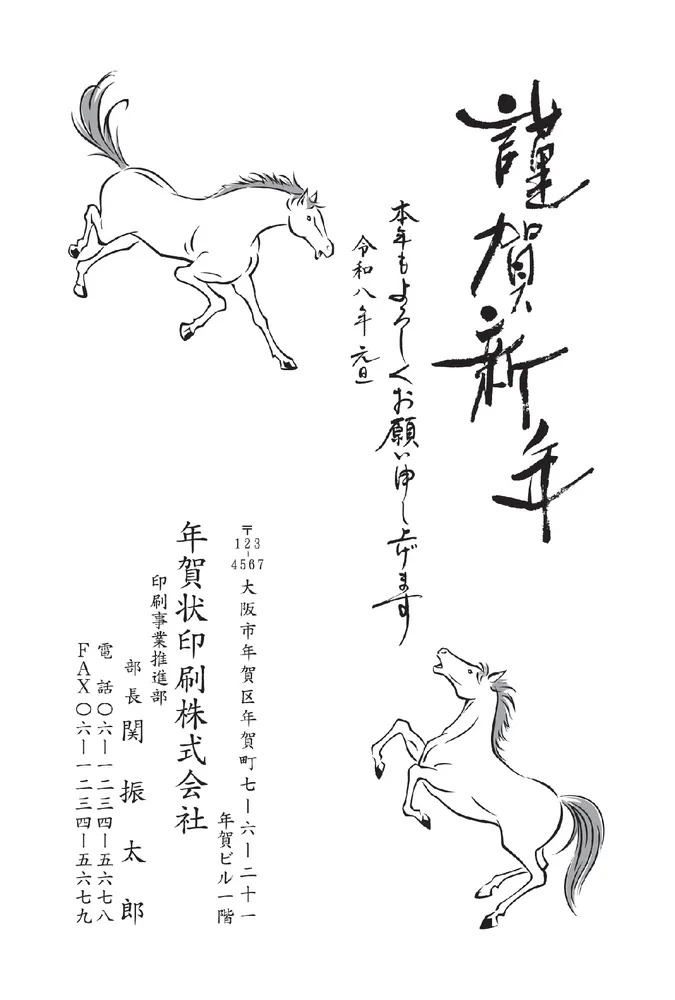 謹賀新年
本年もよろしくお願い申し上げます
令和八年 元旦
〒123-4567 大阪市年賀区年賀町七ー六ー二十一
年賀ビル一階
年賀状印刷株式会社
印刷事業推進部
部長 関 振 太 郎
電 話〇六ー一二三四ー五六七八
FAX〇六ー一二三四ー五六七九